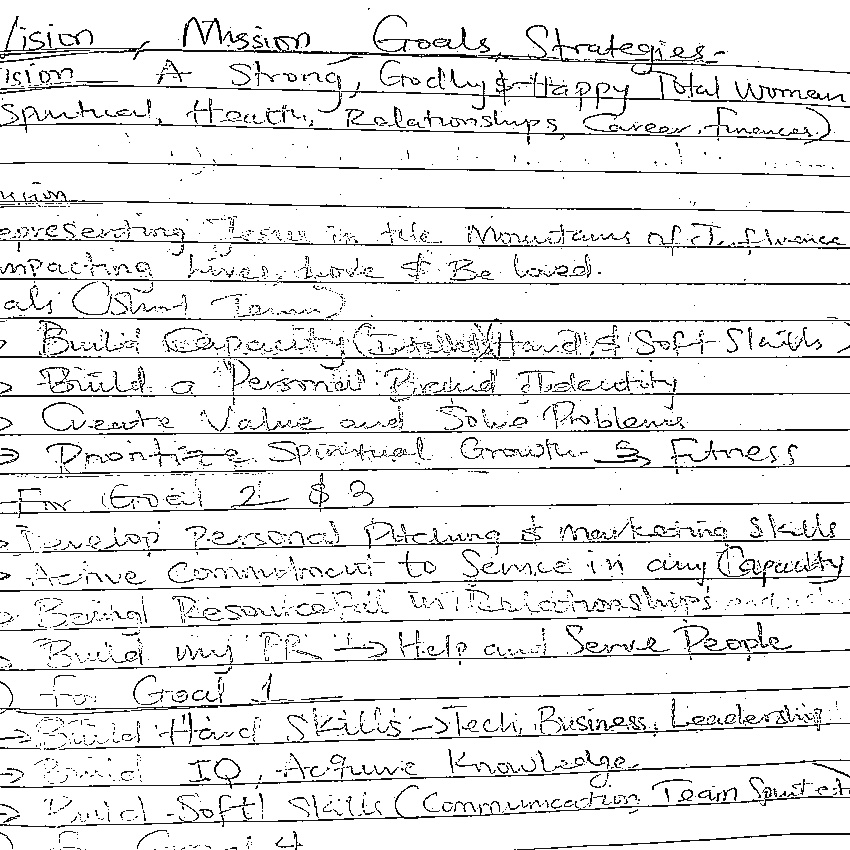 Vision, Mission Goals, Strategies-
Vision A Strong, Godly & Happy Total Woman
Spiritual, Health, Relationships, Career, finances)
Mission
Representing Jesus in the Mountains of Influence
Impacting Lives, Love & Be loved.
Goals (Short Term)
→ Build Capacity ( Hard & Soft Skills)
→ Build a Personal Brand Identity
→ Create Value and Solve Problems
→ Prioritize Spiritual Growth → Fitness
For Goal 2 & 3
→ Develop Personal Pitching & marketing Skills
→ Active Commitment to Service in any Capacity
→ Being Resourceful in Relationships
→ Build my PR → Help and Serve People
) for Goal 1
→ Build Hard Skills → Tech, Business, Leadership
→ Build IQ, Acquire Knowledge
→ Build Soft Skills (Communication, Team Spirit etc
) For Goal 4